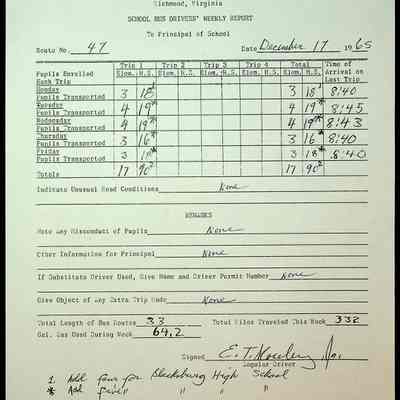 Richmond, Virginia
SCHOOL BUS DRIVERS' WEEKLY REPORT
To Principal of School
Route No. 47 Date December 17 1965
Trip 1 Trip 2 Trip 3 Trip 4 Total Time of
Pupils Enrolled Elem. H.S. Elem. H.S. Elem. H.S. Elem. H.S. Elem. H.S. Arrival on
Each Trip Last Trip
Monday
Pupils Transported 3 18¹ 3 18¹ 8:40
Tuesday
Pupils Transported 4 19* 4 19* 8:45
Wednesday
Pupils Transported 4 19* 4 19* 8:43
Thursday
Pupils Transported 3 16* 3 16* 8:40
Friday
Pupils Transported 3 18* 3 18* 8:40
Totals 17 90² 17 90²
Indicate Unusual Road Conditions None
REMARKS
Note Any Misconduct of Pupils None
Other Information for Principal None
If Substitute Driver Used, Give Name and Driver Permit Number None
Give Object of Any Extra Trip Made None
Total Length of Bus Routes 33 Total Miles Traveled This Week 332
Gal. Gas Used During Week 64.2
Signed E. T. Jr.
Regular Driver
1. Add four for Blacksburg High School
* Add five " " " "